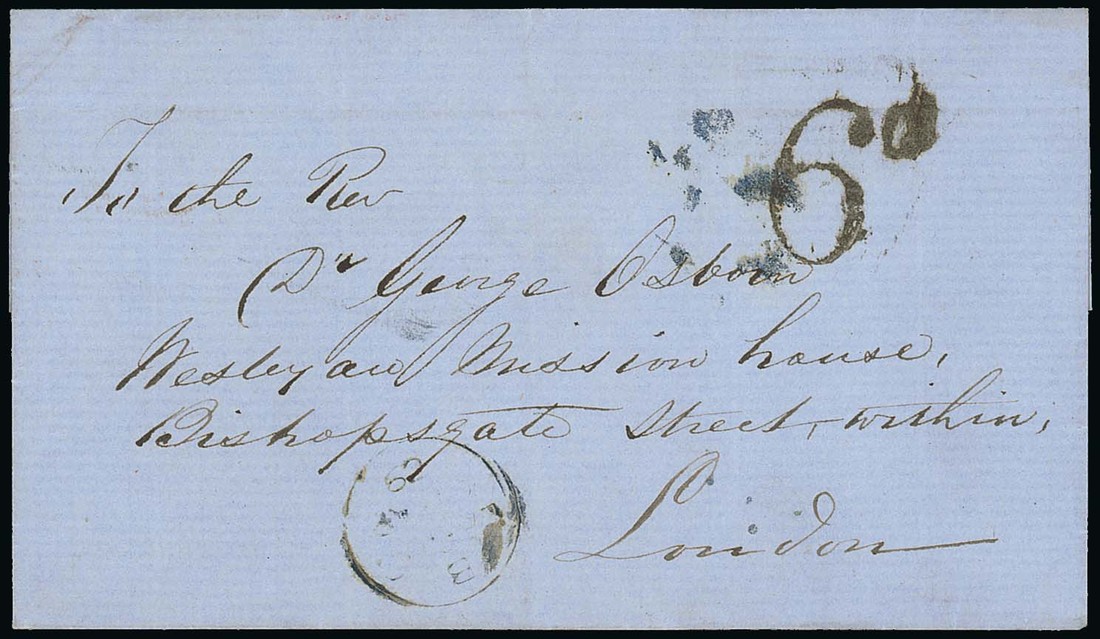 6d
To the Rev
Dr George Osborn
Wesleyan Mission house,
Bishopsgate Street, within,
London